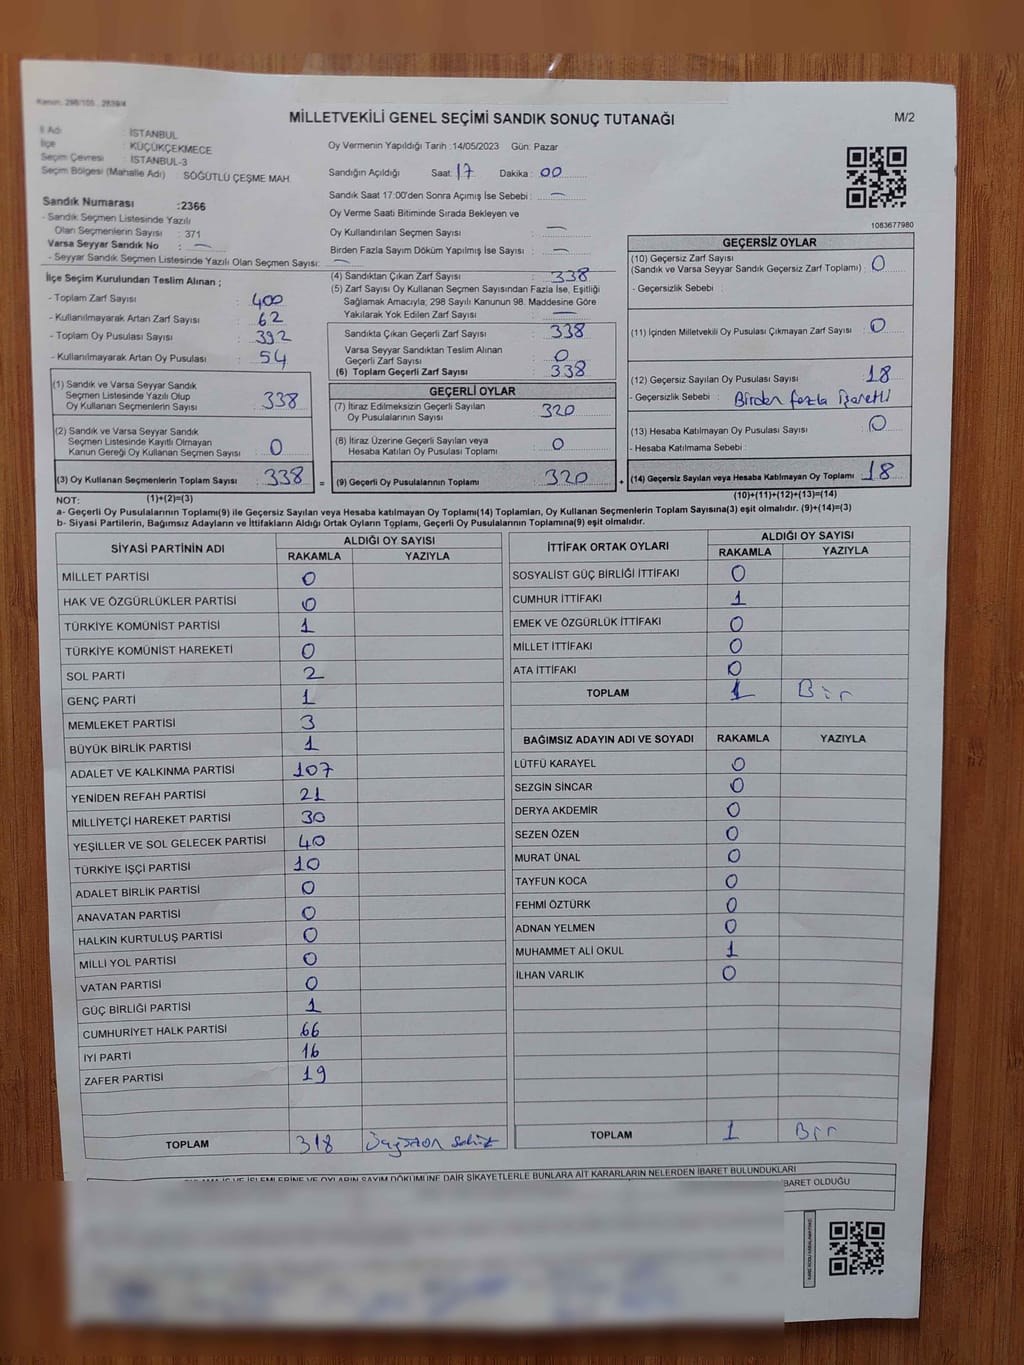 Kanun: 298/105 , 2839/4
MİLLETVEKİLİ GENEL SEÇİMİ SANDIK SONUÇ TUTANAĞI
M/2
İl Adı : İSTANBUL
İlçe : KÜÇÜKÇEKMECE
Seçim Çevresi : İSTANBUL-3
Seçim Bölgesi (Mahalle Adı) : SÖĞÜTLÜ ÇEŞME MAH.
Oy Vermenin Yapıldığı Tarih :14/05/2023 Gün: Pazar
Sandığın Açıldığı Saat: 17 Dakika : 00
Sandık Saat 17:00'den Sonra Açımış İse Sebebi : —
Oy Verme Saati Bitiminde Sırada Bekleyen ve
Oy Kullandırılan Seçmen Sayısı : —
Birden Fazla Sayım Döküm Yapılmış İse Sayısı : —
1083677980
Sandık Numarası :2366
- Sandık Seçmen Listesinde Yazılı
Olan Seçmenlerin Sayısı : 371
Varsa Seyyar Sandık No : —
- Seyyar Sandık Seçmen Listesinde Yazılı Olan Seçmen Sayısı: —
İlçe Seçim Kurulundan Teslim Alınan ;
- Toplam Zarf Sayısı : 400
- Kullanılmayarak Artan Zarf Sayısı : 62
- Toplam Oy Pusulası Sayısı : 392
- Kullanılmayarak Artan Oy Pusulası : 54
(1) Sandık ve Varsa Seyyar Sandık
Seçmen Listesinde Yazılı Olup
Oy Kullanan Seçmenlerin Sayısı : 338
(2) Sandık ve Varsa Seyyar Sandık
Seçmen Listesinde Kayıtlı Olmayan
Kanun Gereği Oy Kullanan Seçmen Sayısı : 0
(3) Oy Kullanan Seçmenlerin Toplam Sayısı : 338 =
(4) Sandıktan Çıkan Zarf Sayısı : 338
(5) Zarf Sayısı Oy Kullanan Seçmen Sayısından Fazla İse, Eşitliği
Sağlamak Amacıyla; 298 Sayılı Kanunun 98. Maddesine Göre
Yakılarak Yok Edilen Zarf Sayısı : —
Sandıkta Çıkan Geçerli Zarf Sayısı : 338
Varsa Seyyar Sandıktan Teslim Alınan
Geçerli Zarf Sayısı : 0
(6) Toplam Geçerli Zarf Sayısı : 338
GEÇERLİ OYLAR
(7) İtiraz Edilmeksizin Geçerli Sayılan
Oy Pusulalarının Sayısı : 320
(8) İtiraz Üzerine Geçerli Sayılan veya
Hesaba Katılan Oy Pusulası Toplamı : 0
(9) Geçerli Oy Pusulalarının Toplamı : 320 +
GEÇERSİZ OYLAR
(10) Geçersiz Zarf Sayısı
(Sandık ve Varsa Seyyar Sandık Geçersiz Zarf Toplamı) : 0
- Geçersizlik Sebebi :
(11) İçinden Milletvekili Oy Pusulası Çıkmayan Zarf Sayısı : 0
(12) Geçersiz Sayılan Oy Pusulası Sayısı : 18
- Geçersizlik Sebebi : Birden fazla işaretli
(13) Hesaba Katılmayan Oy Pusulası Sayısı : 0
- Hesaba Katılmama Sebebi :
(14) Geçersiz Sayılan veya Hesaba Katılmayan Oy Toplamı : 18
NOT: (1)+(2)=(3)
(10)+(11)+(12)+(13)=(14)
a- Geçerli Oy Pusulalarının Toplamı(9) ile Geçersiz Sayılan veya Hesaba katılmayan Oy Toplamı(14) Toplamları, Oy Kullanan Seçmenlerin Toplam Sayısına(3) eşit olmalıdır. (9)+(14)=(3)
b- Siyasi Partilerin, Bağımsız Adayların ve İttifakların Aldığı Ortak Oyların Toplamı, Geçerli Oy Pusulalarının Toplamına(9) eşit olmalıdır.
SİYASİ PARTİNİN ADI ALDIĞI OY SAYISI
RAKAMLA YAZIYLA
MİLLET PARTİSİ 0
HAK VE ÖZGÜRLÜKLER PARTİSİ 0
TÜRKİYE KOMÜNİST PARTİSİ 1
TÜRKİYE KOMÜNİST HAREKETİ 0
SOL PARTİ 2
GENÇ PARTİ 1
MEMLEKET PARTİSİ 3
BÜYÜK BİRLİK PARTİSİ 1
ADALET VE KALKINMA PARTİSİ 107
YENİDEN REFAH PARTİSİ 21
MİLLİYETÇİ HAREKET PARTİSİ 30
YEŞİLLER VE SOL GELECEK PARTİSİ 40
TÜRKİYE İŞÇİ PARTİSİ 10
ADALET BİRLİK PARTİSİ 0
ANAVATAN PARTİSİ 0
HALKIN KURTULUŞ PARTİSİ 0
MİLLİ YOL PARTİSİ 0
VATAN PARTİSİ 0
GÜÇ BİRLİĞİ PARTİSİ 1
CUMHURİYET HALK PARTİSİ 66
İYİ PARTİ 16
ZAFER PARTİSİ 19
TOPLAM 318 Üçyüzon sekiz
İTTİFAK ORTAK OYLARI ALDIĞI OY SAYISI
RAKAMLA YAZIYLA
SOSYALİST GÜÇ BİRLİĞİ İTTİFAKI 0
CUMHUR İTTİFAKI 1
EMEK VE ÖZGÜRLÜK İTTİFAKI 0
MİLLET İTTİFAKI 0
ATA İTTİFAKI 0
TOPLAM 1 Bir
BAĞIMSIZ ADAYIN ADI VE SOYADI RAKAMLA YAZIYLA
LÜTFÜ KARAYEL 0
SEZGİN SİNCAR 0
DERYA AKDEMİR 0
SEZEN ÖZEN 0
MURAT ÜNAL 0
TAYFUN KOCA 0
FEHMİ ÖZTÜRK 0
ADNAN YELMEN 0
MUHAMMET ALİ OKUL 1
İLHAN VARLIK 0
TOPLAM 1 Bir
İŞLEMLERİNE VE OYLARIN SAYIM DÖKÜMÜNE DAİR ŞİKAYETLERLE BUNLARA AİT KARARLARIN NELERDEN İBARET BULUNDUKLARI
İBARET OLDUĞU